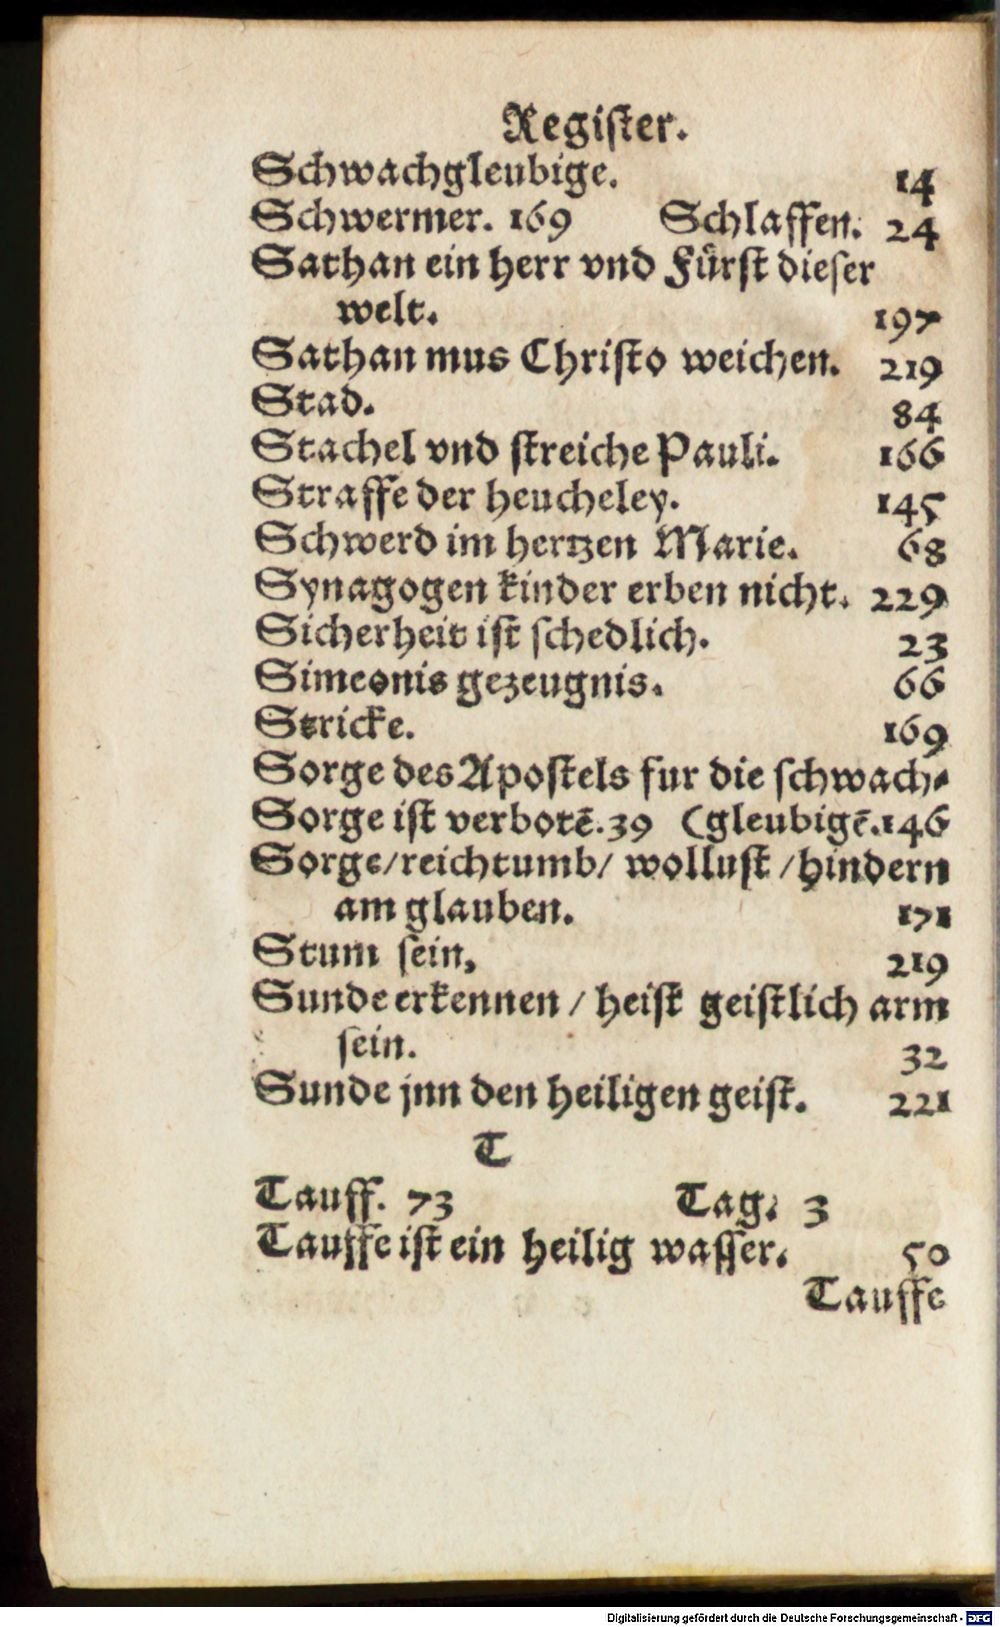 Register.
Schwachgleubige. 14
Schwermer. 169 Schlaffen. 24
Sathan ein herr vnd Fürst dieser
welt. 197
Sathan mus Christo weichen. 219
Stad. 84
Stachel vnd streiche Pauli. 166
Straffe der heucheley. 145
Schwerd im hertzen Marie. 68
Synagogen kinder erben nicht. 229
Sicherheit ist schedlich. 23
Simeonis gezeugnis. 66
Stricke. 169
Sorge des Apostels fur die schwach⸗
Sorge ist verbotē. 39 (gleubigē. 146
Sorge/reichtumb/ wollust /hindern
am glauben. 171
Stum sein, 219
Sunde erkennen / heist geistlich arm
sein. 32
Sunde jnn den heiligen geist. 221
T
Tauff. 73 Tag. 3
Tauffe ist ein heilig wasser. 50
Tauffe
Digitalisierung gefördert durch die Deutsche Forschungsgemeinschaft - DFG